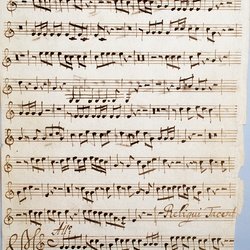 Reliqui Tacent
All: